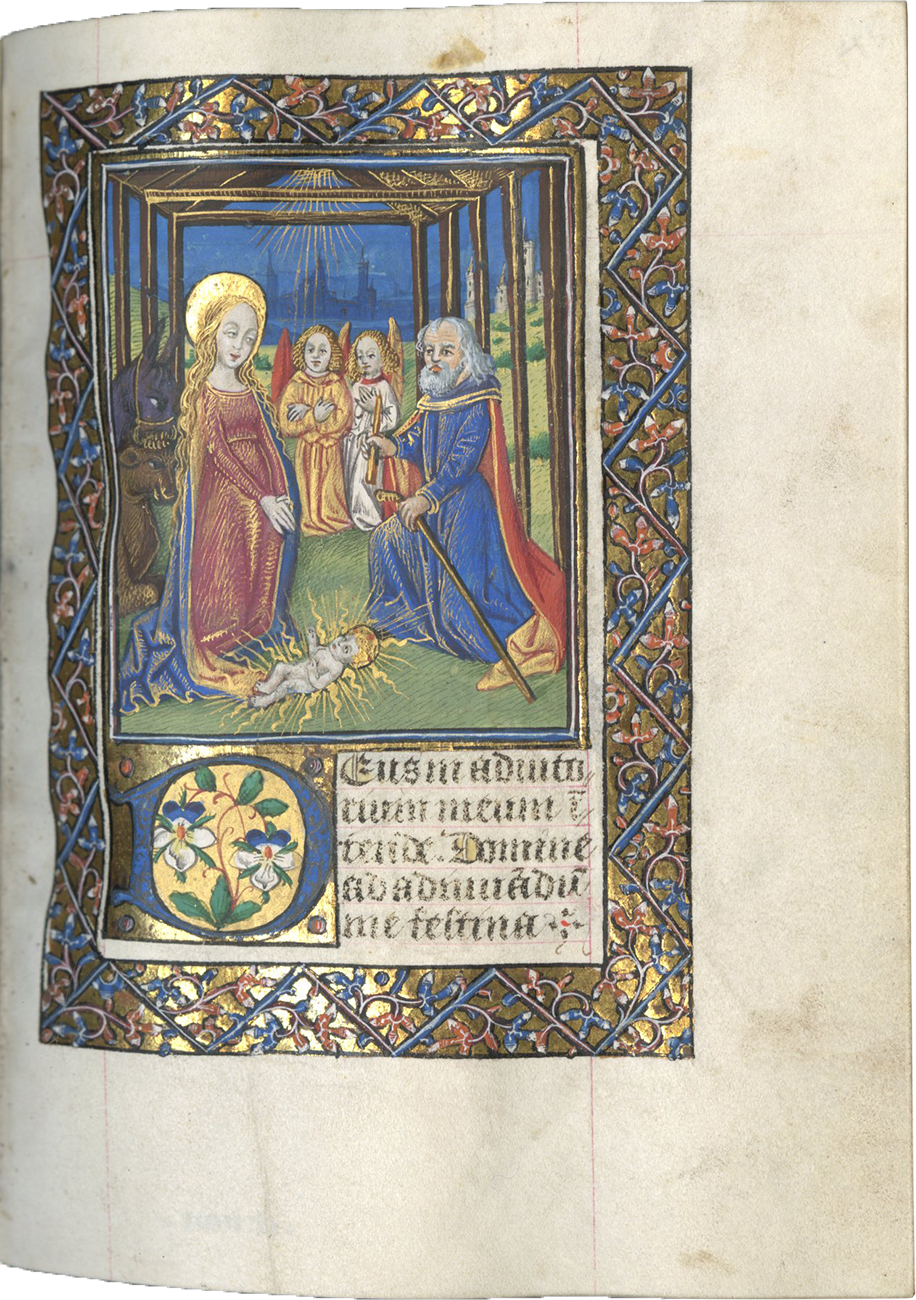 Deus in adiuto
rium meum ī
tende. Domine
ad adiuuādū
me festina